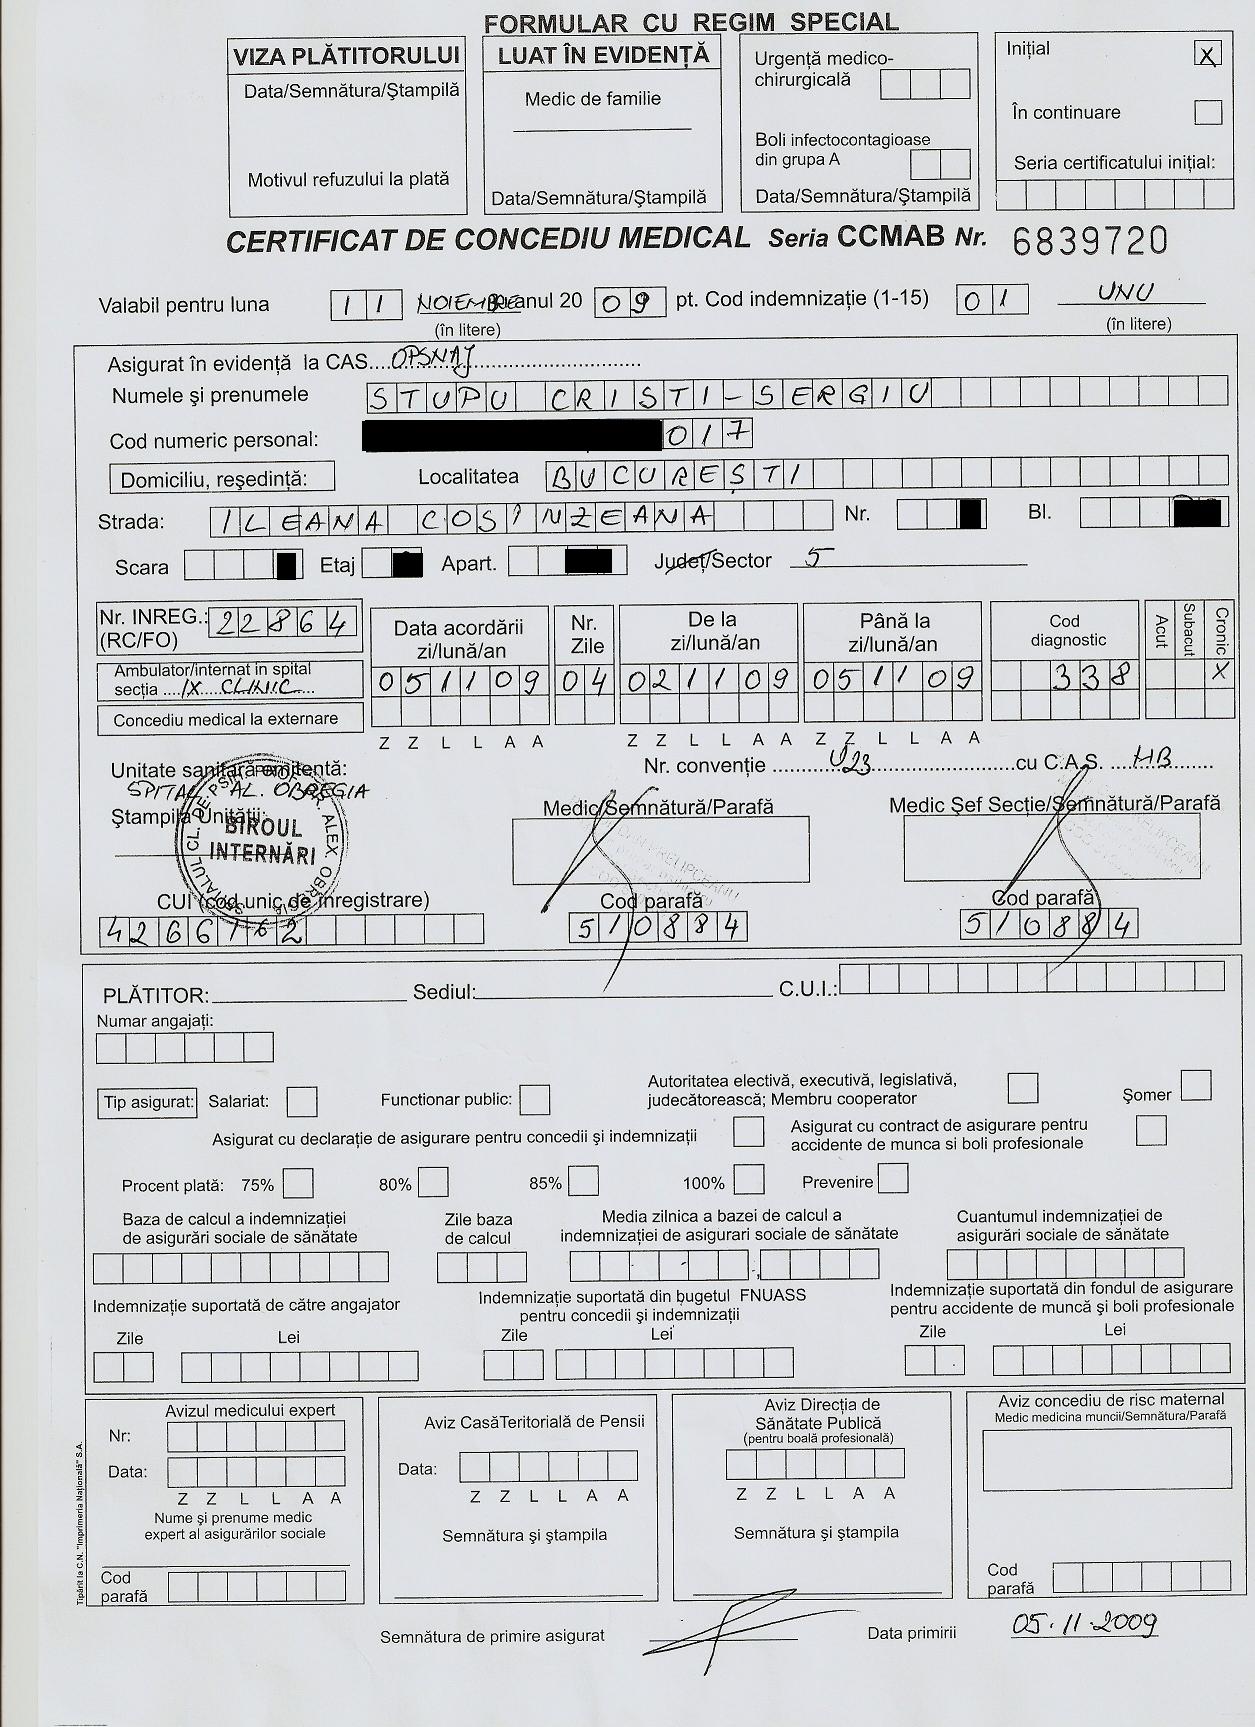 FORMULAR CU REGIM SPECIAL
VIZA PLĂTITORULUI
Data/Semnătura/Ştampilă
Motivul refuzului la plată
LUAT ÎN EVIDENŢĂ
Medic de familie
Data/Semnătura/Ştampilă
Urgenţă medico-
chirurgicală
Boli infectocontagioase
din grupa A
Data/Semnătura/Ştampilă
Iniţial X
În continuare
Seria certificatului iniţial:
CERTIFICAT DE CONCEDIU MEDICAL Seria CCMAB Nr. 6839720
Valabil pentru luna 11 NOIEMBRIE anul 20 09 pt. Cod indemnizaţie (1-15) 01 UNU
(în litere) (în litere)
Asigurat în evidenţă la CAS....OPSNAJ
Numele şi prenumele STUPU CRISTI-SERGIU
Cod numeric personal: 017
Domiciliu, reşedinţă: Localitatea BUCUREȘTI
Strada: ILEANA COSINZEANA Nr. Bl.
Scara Etaj Apart. Judeţ/Sector 5
Nr. INREG.: 22864
(RC/FO)
Ambulator/internat in spital
secţia ....IX....CLINIC....
Concediu medical la externare
Data acordării
zi/lună/an
051109
Z Z L L A A
Nr.
Zile
04
De la
zi/lună/an
021109
Z Z L L A A
Până la
zi/lună/an
051109
Z Z L L A A
Cod
diagnostic
338
Acut
Subacut
Cronic
X
Unitate sanitară emitentă:
SPITAL AL. OBREGIA
Ştampila Unităţii:
BIROUL
INTERNĂRI
Nr. convenţie U23 cu C.A.S. MB
Medic/Semnătură/Parafă
Medic Şef Secţie/Semnătură/Parafă
CUI (cod unic de înregistrare)
4266162
Cod parafă
510884
Cod parafă
510884
PLĂTITOR: Sediul: C.U.I.:
Numar angajaţi:
Tip asigurat: Salariat: Functionar public:
Autoritatea electivă, executivă, legislativă,
judecătorească; Membru cooperator
Şomer
Asigurat cu declaraţie de asigurare pentru concedii şi indemnizaţii
Asigurat cu contract de asigurare pentru
accidente de munca si boli profesionale
Procent plată: 75% 80% 85% 100% Prevenire
Baza de calcul a indemnizaţiei
de asigurări sociale de sănătate
Zile baza
de calcul
Media zilnica a bazei de calcul a
indemnizaţiei de asigurari sociale de sănătate
Cuantumul indemnizaţiei de
asigurări sociale de sănătate
Indemnizaţie suportată de către angajator
Zile Lei
Indemnizaţie suportată din bugetul FNUASS
pentru concedii şi indemnizaţii
Zile Lei
Indemnizaţie suportată din fondul de asigurare
pentru accidente de muncă şi boli profesionale
Zile Lei
Avizul medicului expert
Nr:
Data:
Z Z L L A A
Nume şi prenume medic
expert al asigurărilor sociale
Cod
parafă
Aviz CasăTeritorială de Pensii
Data:
Z Z L L A A
Semnătura şi ştampila
Aviz Direcţia de
Sănătate Publică
(pentru boală profesională)
Z Z L L A A
Semnătura şi ştampila
Aviz concediu de risc maternal
Medic medicina muncii/Semnătura/Parafă
Cod
parafă
Tipărit la C.N. "Imprimeria Naţională" S.A.
Semnătura de primire asigurat Data primirii 05.11.2009